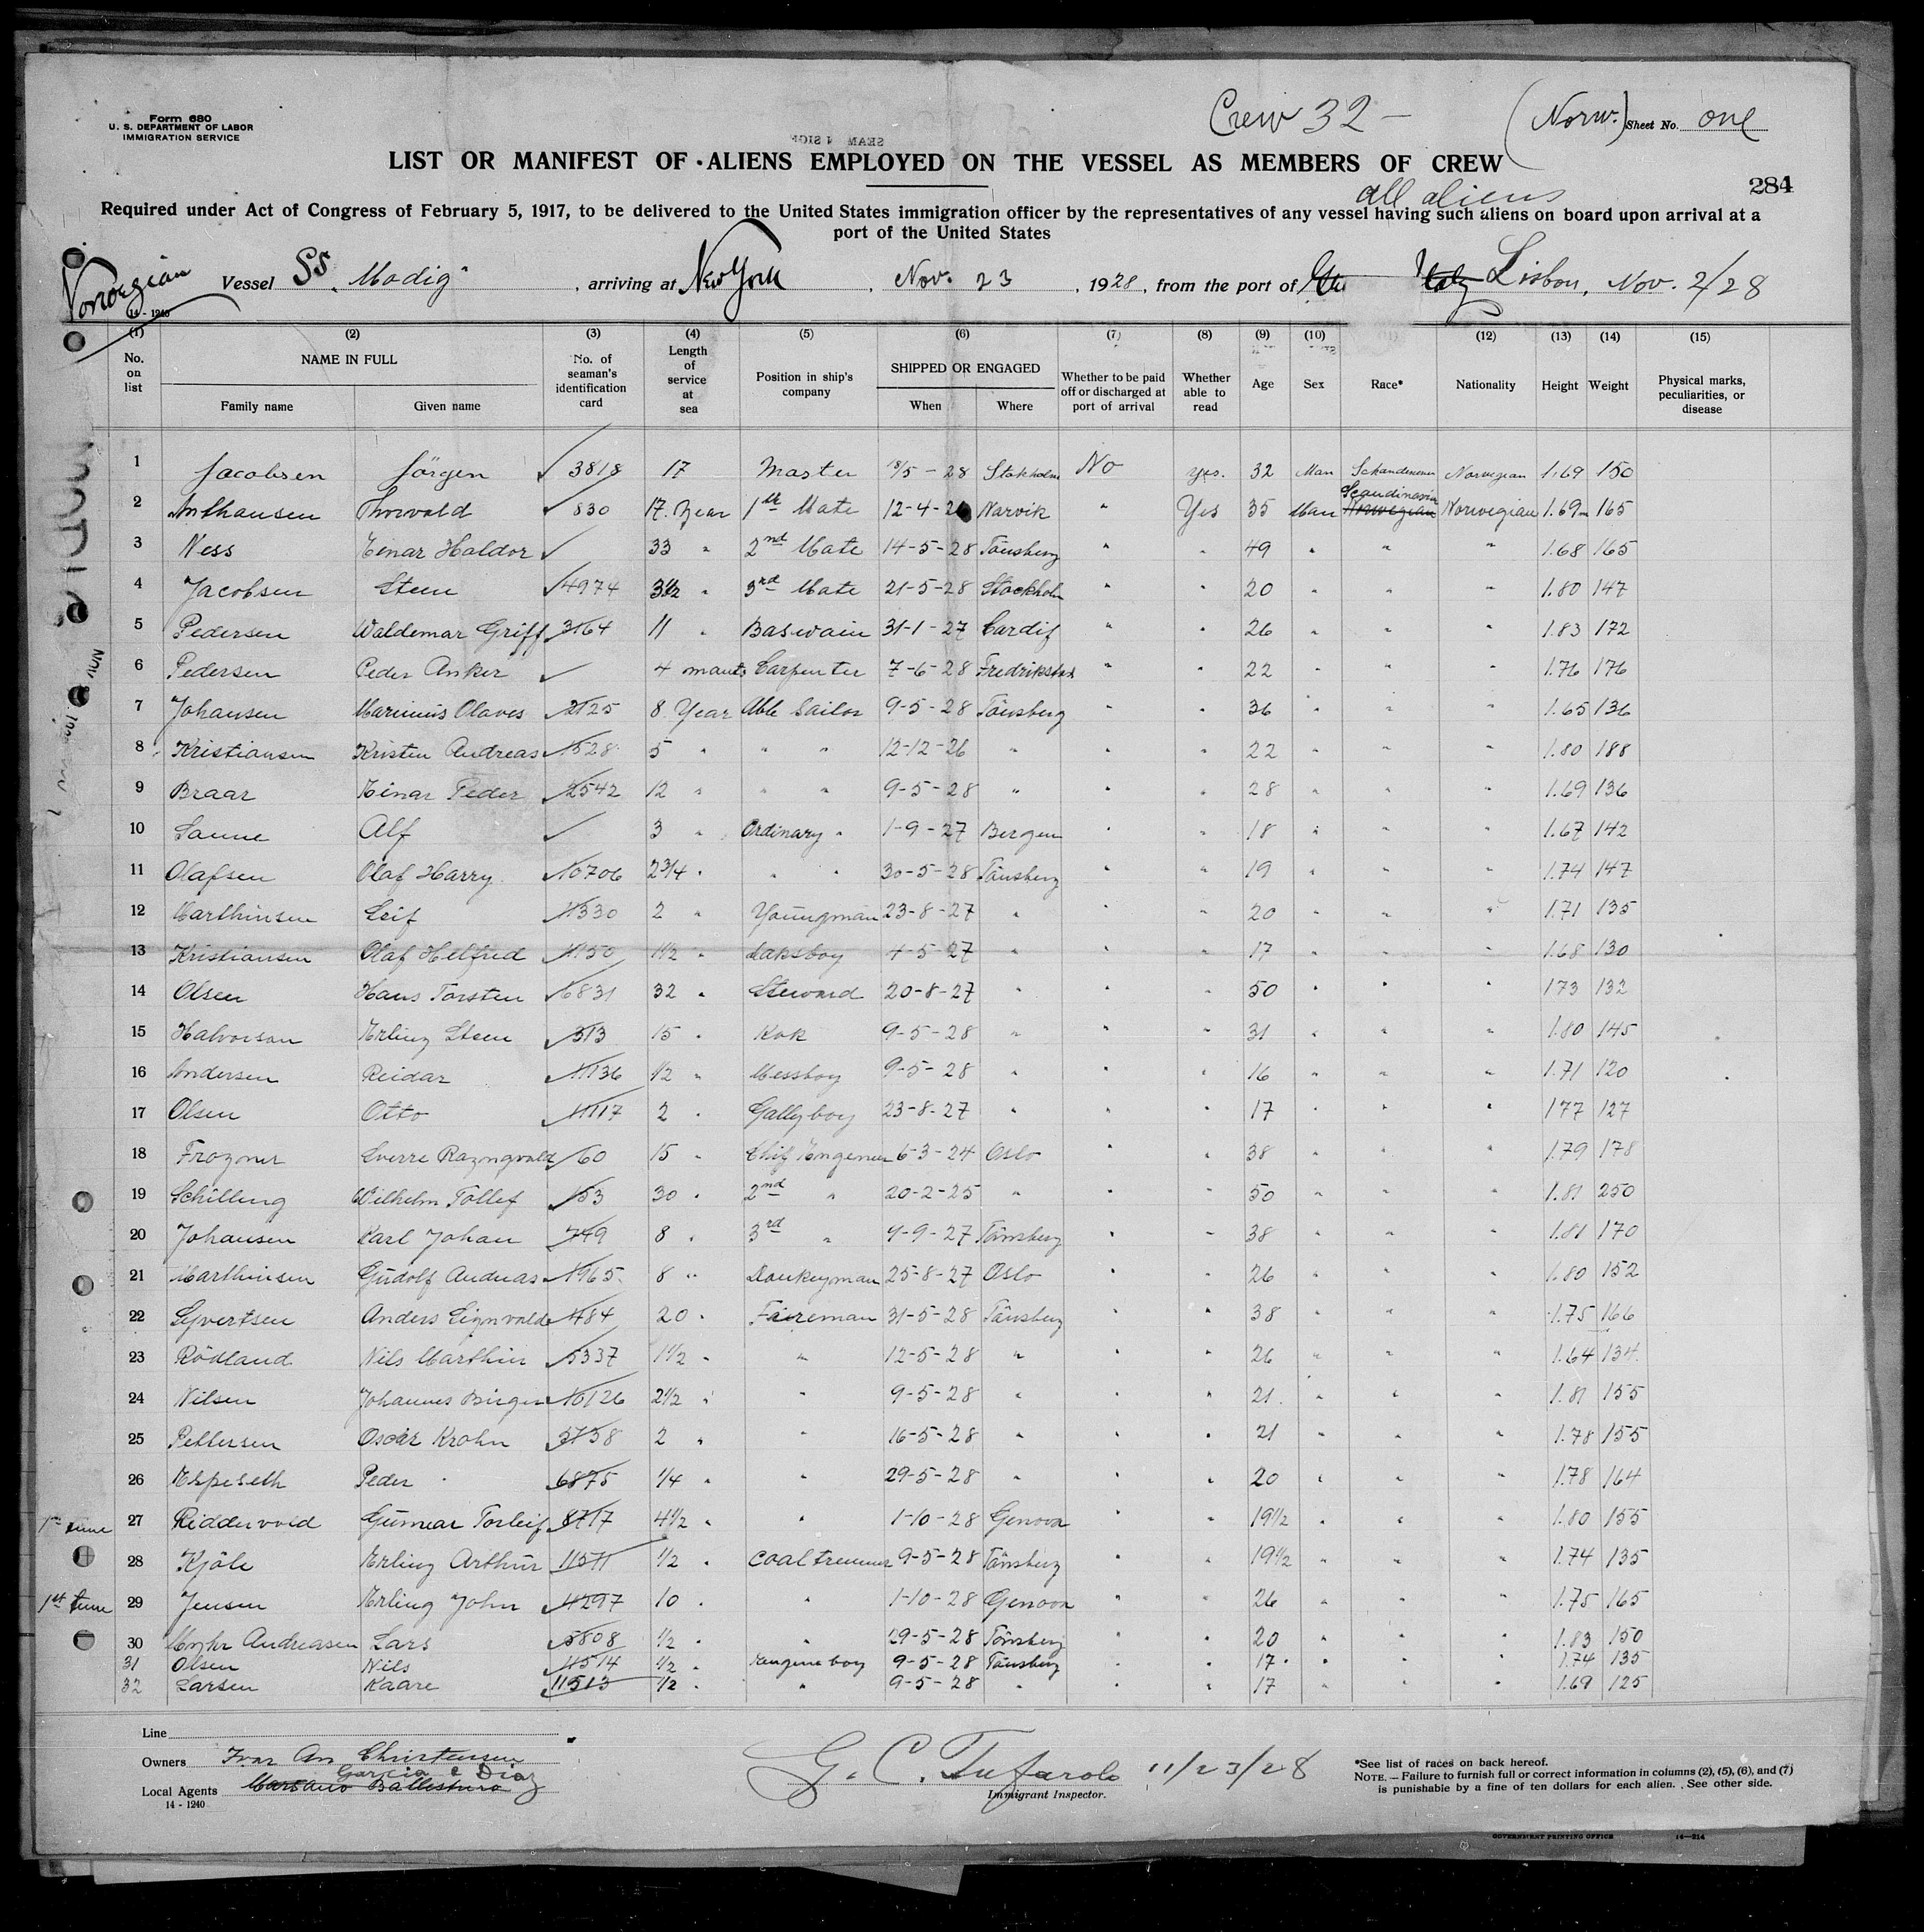 Crew 32 - (Norw.) Sheet No. one
Form 680
U. S. DEPARTMENT OF LABOR
IMMIGRATION SERVICE
LIST OR MANIFEST OF ALIENS EMPLOYED ON THE VESSEL AS MEMBERS OF CREW
all aliens
284
Required under Act of Congress of February 5, 1917, to be delivered to the United States immigration officer by the representatives of any vessel having such aliens on board upon arrival at a
port of the United States
Norwegian Vessel SS. "Modig" , arriving at New York , Nov. 23 , 1928 , from the port of Italy Lisbon, Nov. 2/28
14-1240
(1) (2) (3) (4) (5) (6) (7) (8) (9) (10) (11) (12) (13) (14) (15)
No. on list NAME IN FULL Family name Given name No. of seaman's identification card Length of service at sea Position in ship's company SHIPPED OR ENGAGED When Where Whether to be paid off or discharged at port of arrival Whether able to read Age Sex Race* Nationality Height Weight Physical marks, peculiarities, or disease
1 Jacobsen Jörgen 3818 17 Master 18/5-28 Stokholm No yes. 32 Man Skandinever Norwegian 1.69 150
2 Anthausen Thorvald 830 17. Year 1st Mate 12-4-2 Narvik " Yes 35 Man Scandinavia Norwegian Norwegian 1.69 165
3 Ness Einar Haldor 33 " 2nd Mate 14-5-28 Tönsberg " " 49 " " " 1.68 165
4 Jacobsen Steen 4974 3 1/2 " 3rd Mate 21-5-28 Stockholm " " 20 " " " 1.80 147
5 Pedersen Waldemar Griff 3164 11 " Baswain 31-1-27 Cardif " " 26 " " " 1.83 172
6 Pedersen Peder Anker 4 mants Carpenter 7-6-28 Fredrikstad " " 22 " " " 1.76 176
7 Johansen Marinius Olaves 2125 8 Year Able Sailor 9-5-28 Tönsberg " " 36 " " " 1.65 136
8 Kristiansen Kristen Andreas 1528 5 " " " 12-12-26 " " " 22 " " " 1.80 188
9 Braar Einar Peder 2542 12 " " " 9-5-28 " " " 28 " " " 1.69 136
10 Sanne Alf 3 " Ordinary " 1-9-27 Bergen " " 18 " " " 1.67 142
11 Olafsen Olaf Harry 10706 2 3/4 " " " 30-5-28 Tönsberg " " 19 " " " 1.74 147
12 Marthinsen Leif 11330 2 " Youngman 23-8-27 " " " 20 " " " 1.71 135
13 Kristiansen Olaf Helfred 11150 1 1/2 " Daksboy 4-5-27 " " " 17 " " " 1.68 130
14 Olsen Hans Torsten 16831 32 " Steward 20-8-27 " " " 50 " " " 173 132
15 Halvorsen Erling Steen 313 15 " Kok 9-5-28 " " " 31 " " " 1.80 145
16 Andersen Reidar 11136 1/2 " Messboy 9-5-28 " " " 16 " " " 1.71 120
17 Olsen Otto 11117 2 " Gallyboy 23-8-27 " " " 17 " " " 177 127
18 Frogner Sverre Razngvald 60 15 " Chif Engeneer 6-3-24 Oslo " " 38 " " " 1.79 178
19 Schilling Wilhelm Tollef 153 30 " 2nd " 20-2-25 " " " 50 " " " 1.81 250
20 Johansen Karl Johan 749 8 " 3rd " 9-9-27 Tönsberg " " 38 " " " 1.81 170
21 Marthinsen Gudolf Andreas 1965 8 " Donkeyman 25-8-27 Oslo " " 26 " " " 1.80 152
22 Syvertsen Anders Signvald 1184 20 " Faireman 31-5-28 Tönsberg " " 38 " " " 1.75 166
23 Rödland Nils Marthin 5337 1 1/2 " " 12-5-28 " " " 26 " " " 1.64 134
24 Nilsen Johannes Birger 10126 2 1/2 " " 9-5-28 " " " 21 " " " 1.81 155
25 Pettersen Oscar Krohn 3738 2 " " 16-5-28 " " " 21 " " " 1.78 155
26 Espeseth Peder 6875 1/4 " " 29-5-28 " " " 20 " " " 1.78 164
1st time 27 Riddervold Gunnar Torleif 8717 4 1/2 " " 1-10-28 Genova " " 19 1/2 " " " 1.80 155
28 Kjöle Erling Arthur 11511 1/2 " Coaltremmer 9-5-28 Tönsberg " " 19 1/2 " " " 1.74 135
1st time 29 Jensen Erling John 4297 10 " " 1-10-28 Genova " " 26 " " " 1.75 165
30 Myhr Andreasen Lars 5808 1/2 " " 29-5-28 Tönsberg " " 20 " " " 1.83 150
31 Olsen Nils 11514 1/2 " Engine boy 9-5-28 Tönsberg " " 17 " " " 1.74 135
32 Larsen Kaare 11513 1/2 " " 9-5-28 " " " 17 " " " 1.69 125
Line
Owners Ivar An Christensen
Garcia & Diaz
Local Agents Marsano Ballestrero
14-1240
G. C. Tufarolo 11/23/28
Immigrant Inspector.
*See list of races on back hereof.
NOTE.—Failure to furnish full or correct information in columns (2), (5), (6), and (7)
is punishable by a fine of ten dollars for each alien. See other side.
GOVERNMENT PRINTING OFFICE 14-314